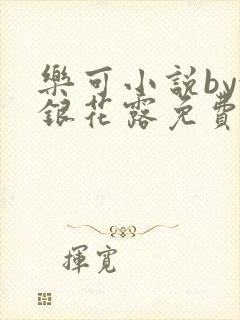 樂可小說by
銀花露免費
揮寬